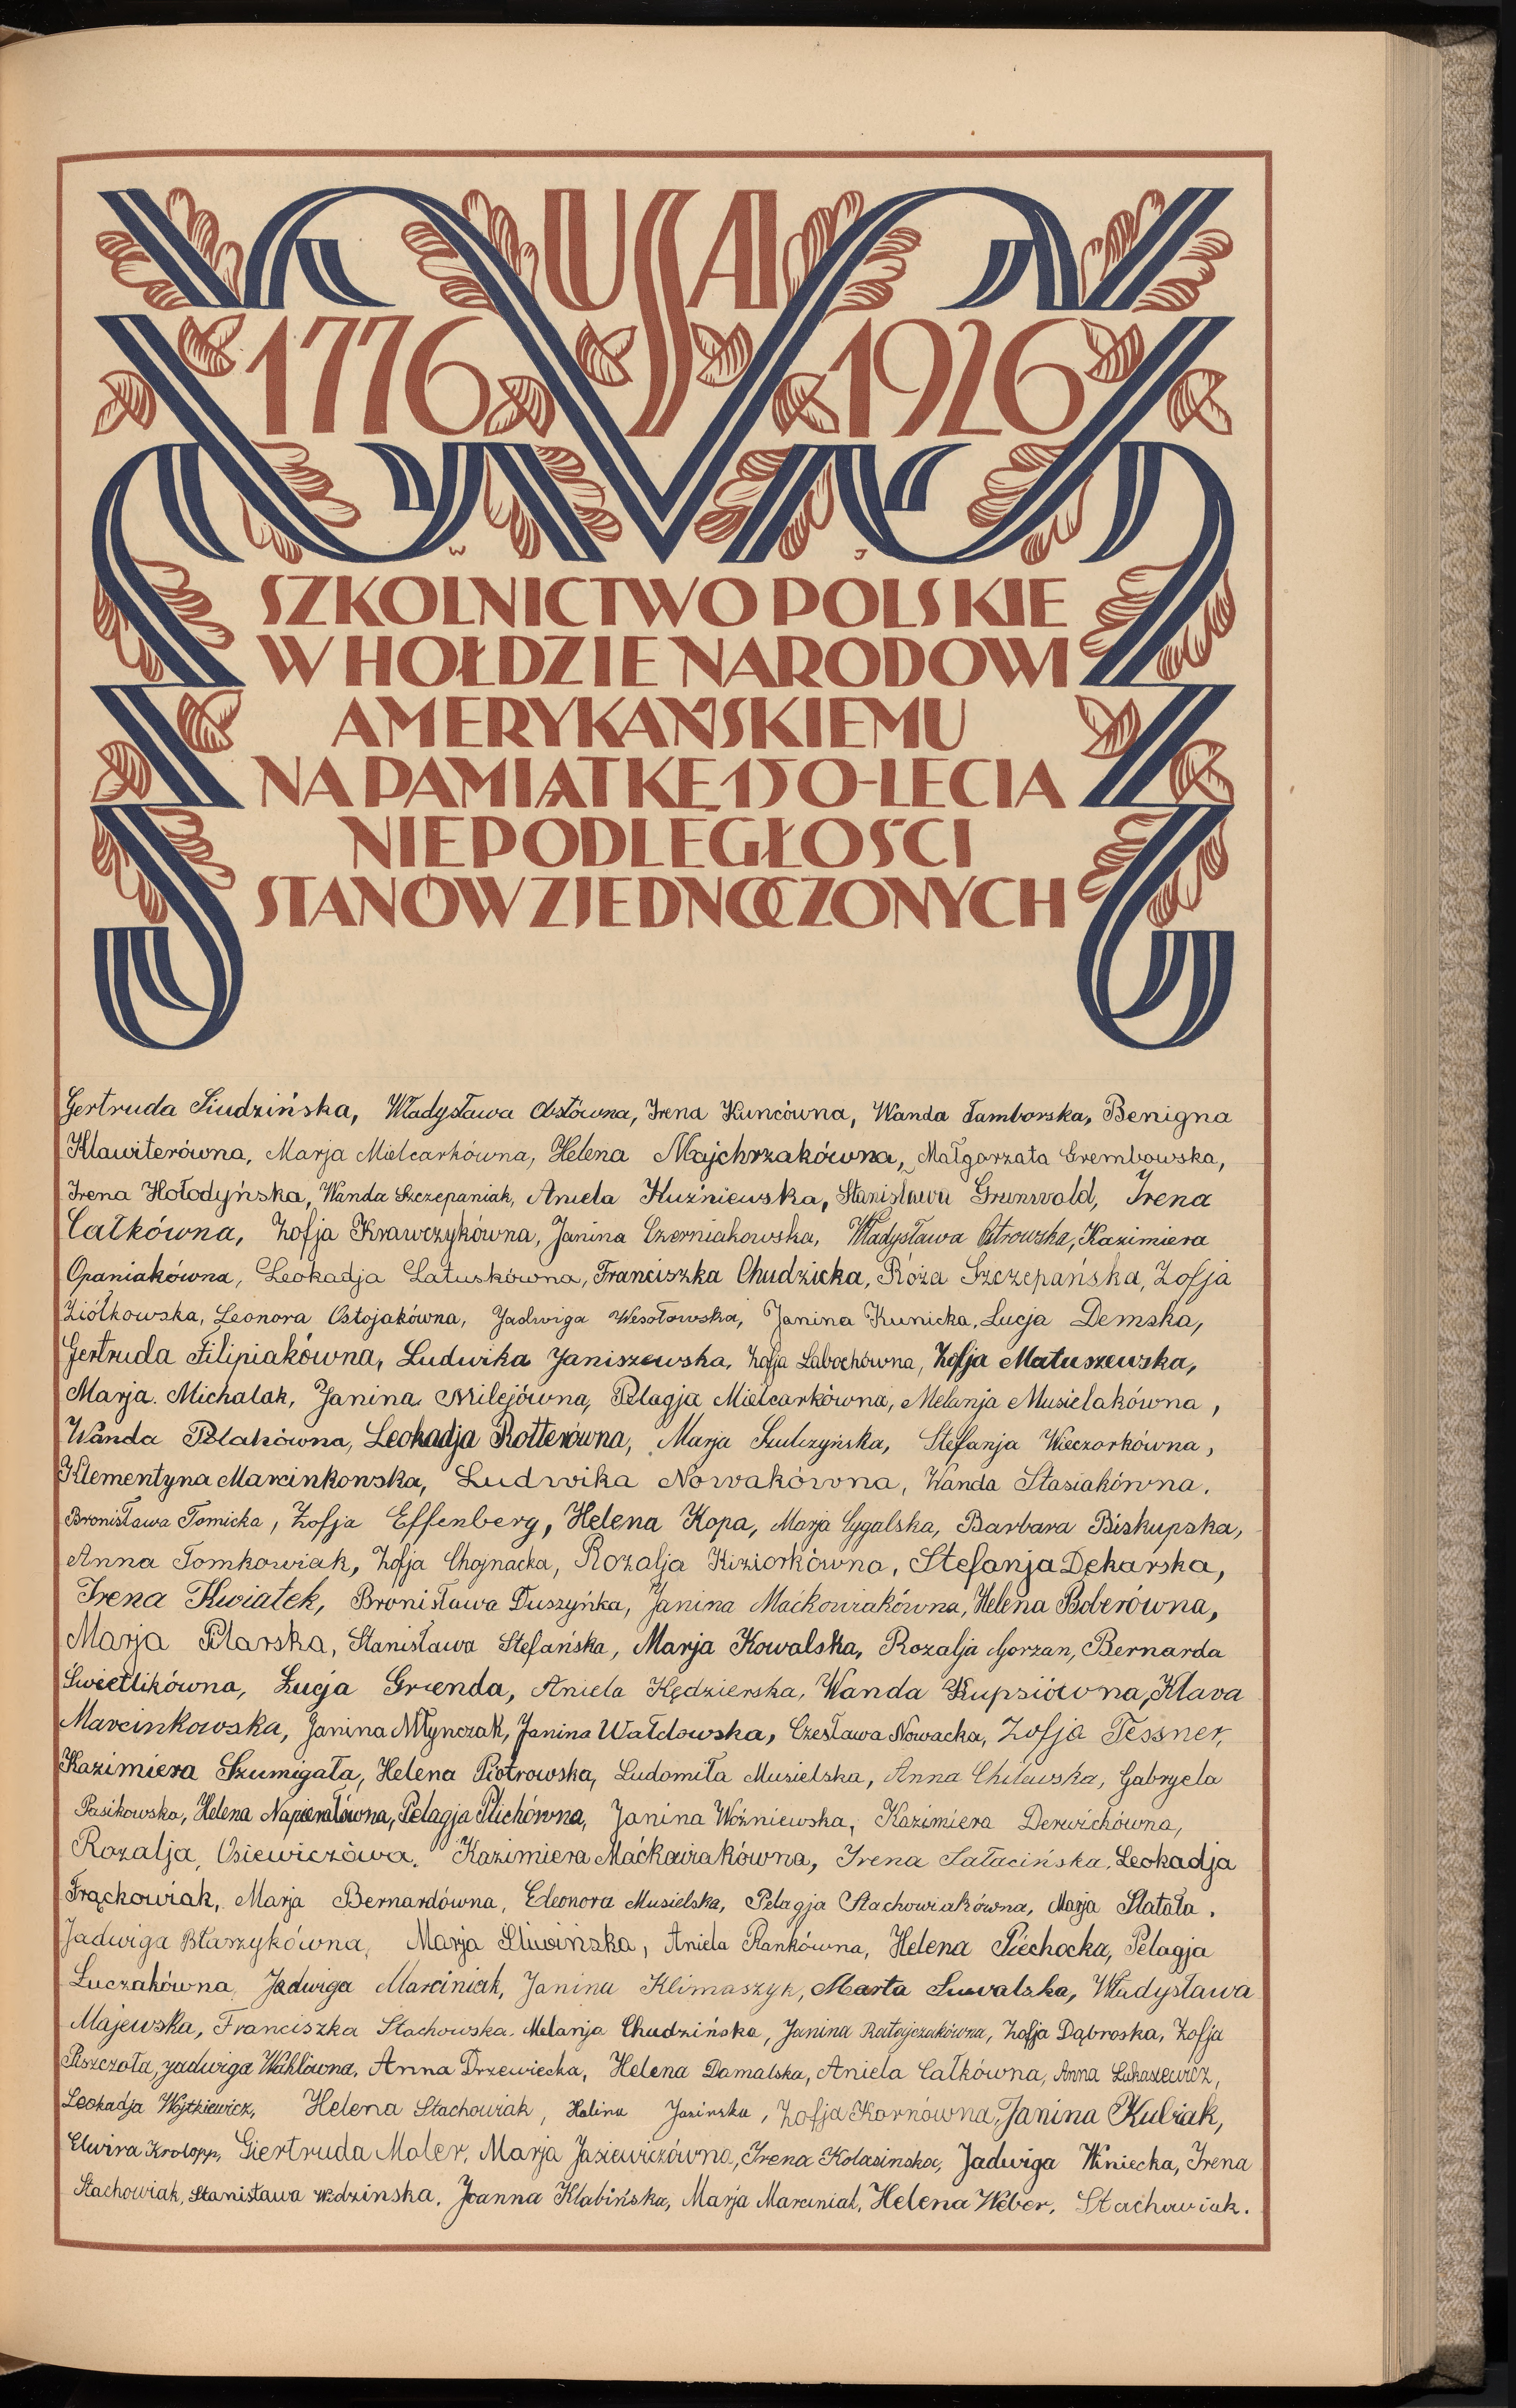 USA
1776 1926
W J
SZKOLNICTWO POLSKIE
W HOŁDZIE NARODOWI
AMERYKAŃSKIEMU
NA PAMIĄTKĘ 150-LECIA
NIEPODLEGŁOŚCI
STANÓW ZJEDNOCZONYCH
Gertruda Siudzińska, Władysława Obstówna, Irena Kuncówna, Wanda Tamborska, Benigna
Klawiterówna, Marja Mielcarkówna, Helena Majchrzakówna, Małgorzata Grembowska,
Irena Hołodyńska, Wanda Szczepaniak, Aniela Kuźniewska, Stanisława Grunwald, Irena
Całkówna, Zofja Krawczykówna, Janina Czerniakowska, Władysława Ostrowska, Kazimiera
Opaniakówna, Leokadja Latuskówna, Franciszka Chudzicka, Róża Szczepańska, Zofja
Ziółkowska, Leonora Ostojakówna, Jadwiga Wesołowska, Janina Kunicka, Lucja Demska,
Gertruda Filipiakówna, Ludwika Janiszewska, Zofja Labochówna, Zofja Matuszewska,
Marja. Michalak, Janina Milejówna, Pelagja Mielcarkówna, Melanja Musielakówna,
Wanda Polakówna, Leokadja Rotterówna, Marja Szulczyńska, Stefanja Wieczorkówna,
Klementyna Marcinkowska, Ludwika Nowakówna, Wanda Stasiakówna.
Bronisława Tomicka, Zofja Effenberg, Helena Kopa, Marja Cygalska, Barbara Biskupska,
Anna Tomkowiak, Zofja Chojnacka, Rozalja Kiziorkówna, Stefanja Dękarska,
Irena Kwiatek, Bronisława Duszyńka, Janina Maćkowiakówna, Helena Boberówna,
Marja Pilarska, Stanisława Stefańska, Marja Kowalska, Rozalja Gorzan, Bernarda
Świetlikówna, Łucja Grenda, Aniela Kędzierska, Wanda Kupsiówna, Klara
Marcinkowska, Janina Młynczak, Janina Wałdowska, Czesława Nowacka, Zofja Tessner,
Kazimiera Szumigała, Helena Piotrowska, Ludomiła Musielska, Anna Chilewska, Gabryela
Pasikowska, Helena Napierałówna, Pelagja Plichówna, Janina Woźniewska, Kazimiera Derwichówna,
Rozalja Osiewiczówa. Kazimiera Maćkowiakówna, Irena Sałacińska, Leokadja
Frąckowiak, Marja Bernardówna, Eleonora Musielska, Pelagja Stachowiakówna, Marja Statała.
Jadwiga Błaszykówna, Marja Śliwińska, Aniela Rankówna, Helena Piechocka, Pelagja
Luczakówna, Jadwiga Marciniak, Janina Klimaszyk, Marta Suwalska, Władysława
Majewska, Franciszka Stachowska. Melanja Chudzińska, Janina Ratajczakówna, Zofja Dąbroska, Zofja
Piszczała, Jadwiga Wahlówna, Anna Drzewiecka, Helena Domalska, Aniela Całkówna, Anna Łukasiewicz,
Leokadja Wojtkiewicz, Helena Stachowiak, Halina Jasinska, Zofja Kornówna, Janina Kubiak,
Elwira Krolopp, Giertruda Moler, Marja Jasiewiczówna, Irena Kolasinska, Jadwiga Winiecka, Irena
Stachowiak, Stanisława Wdzinska. Joanna Klabińska, Marja Marciniak, Helena Weber, Stachowiak.